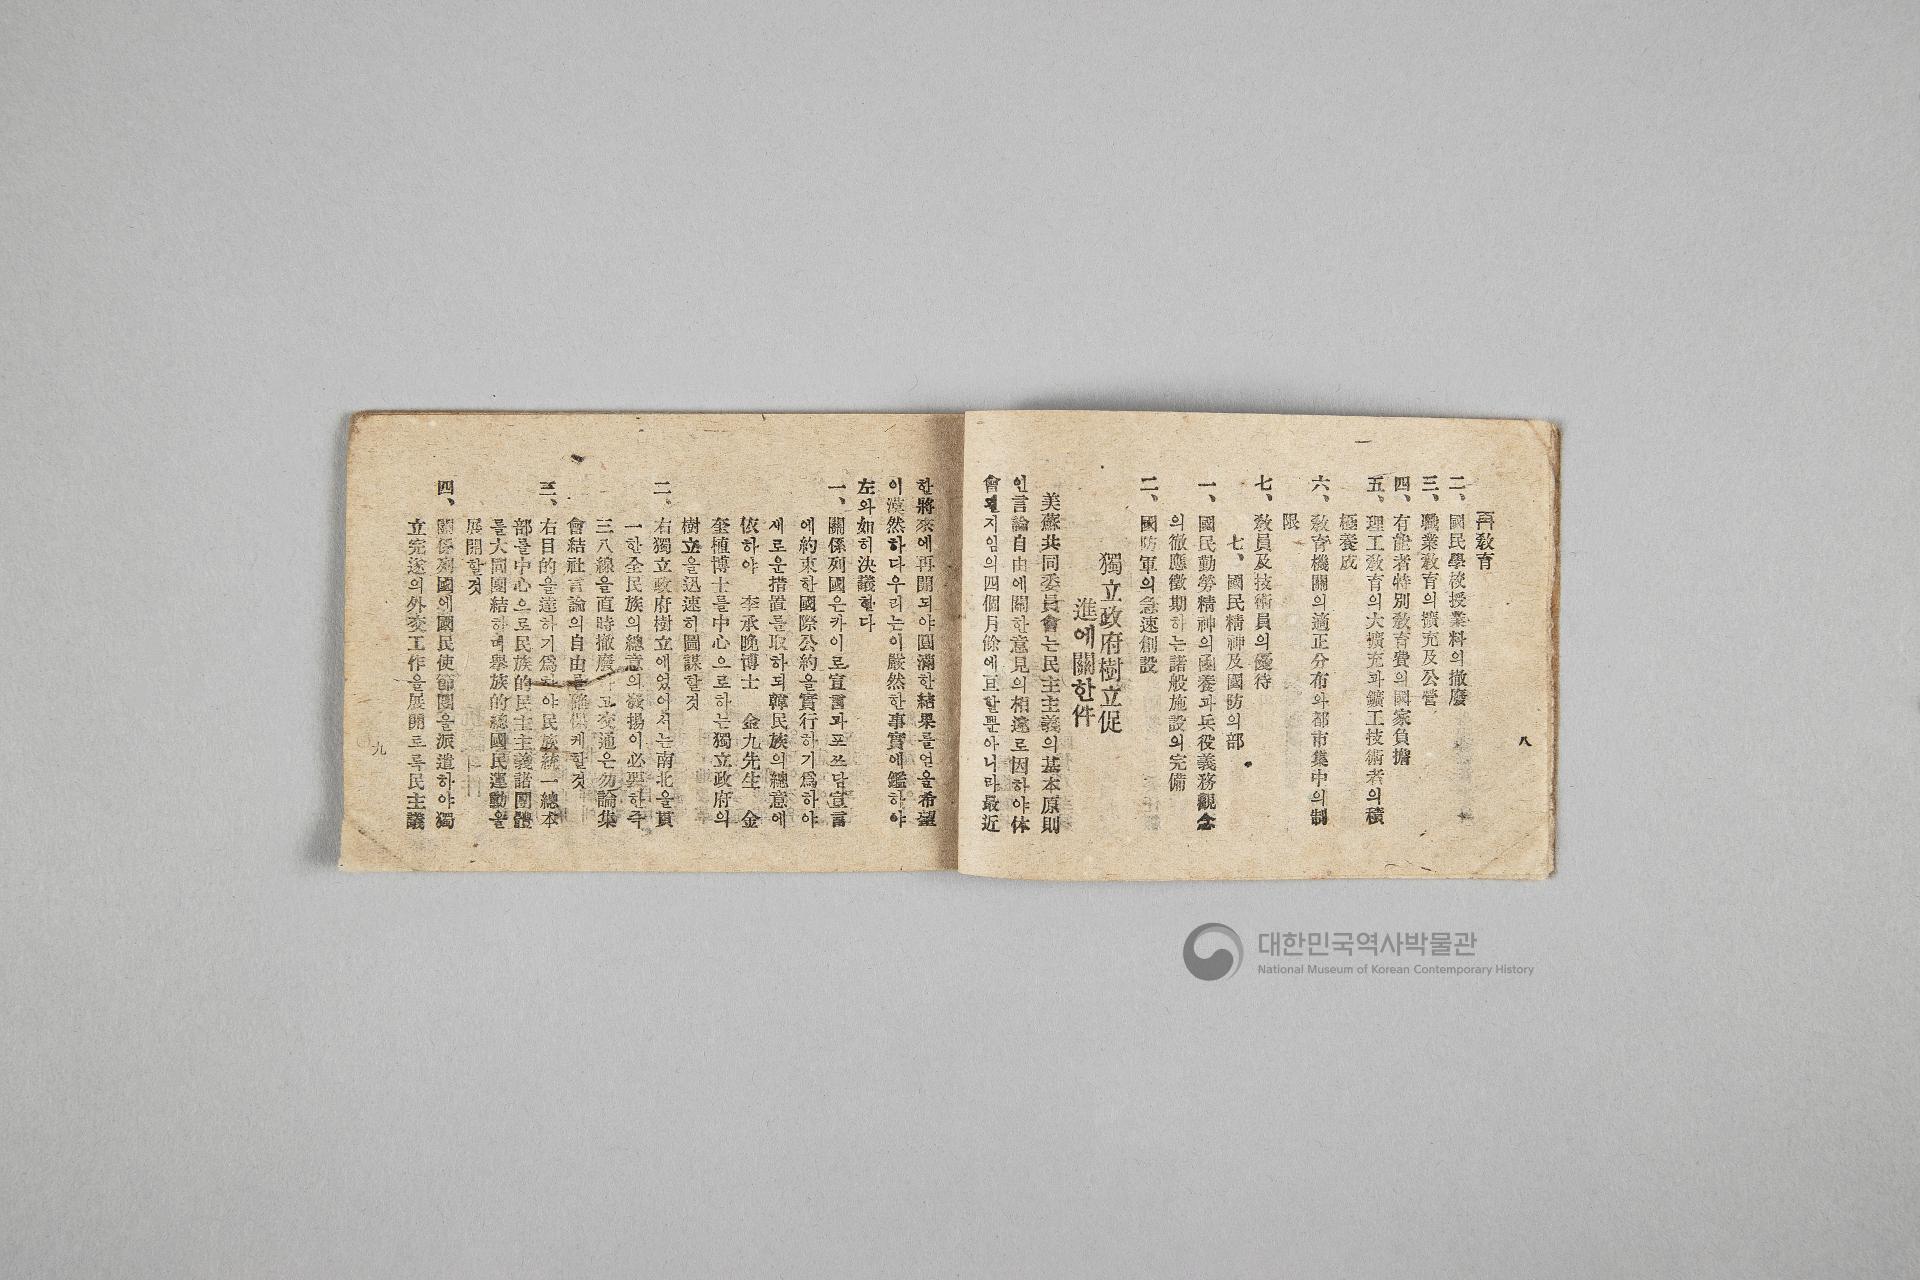 八
再敎育
二、國民學校授業料의撤廢
三、職業敎育의擴充及公營
四、有能者特別敎育費의國家負擔
五、理工敎育의大擴充과鑛工技術者의積
極養成
六、敎育機關의適正分布와都市集中의制
限
七、敎員及技術員의優待
七、國民精神及國防의部
一、國民勤勞精神의函養과兵役義務觀念
의徹應徵期하는諸般施設의完備
二、國防軍의急速創設
獨立政府樹立促
進에關한件
美蘇共同委員會는民主主義의基本原則
인言論自由에關한意見의相違로因하야休
會 지임의四個月餘에亘할뿐아니라最近
한將來에再開되야圓滿한結果를얻을希望
이漠然하다우리는이嚴然한事實에鑑하야
左와如히決議한다
一、關係列國은카이로宣言과포쓰담宣言
에約束한國際公約을實行하기爲하야
새로운措置를取하되韓民族의總意에
依하야 李承晩博士 金九先生 金
奎植博士를中心으로하는獨立政府의
樹立을迅速히圖謀할것
二、右獨立政府樹立에있어서는南北을貫
一한全民族의總意의發揚이必要한즉
三八線을直時撤廢 고交通은勿論集
會結社言論의自由를 케할것
三、右目的을達하기爲하야民族統一總本
部를中心으로民族的民主主義諸團體
를大同團結하여擧族的總國民運動을
展開할것
四、關係列國에國民使節團을派遣하야獨
立完遂의外交工作을展開토록民主議
九
대한민국역사박물관
National Museum of Korean Contemporary History